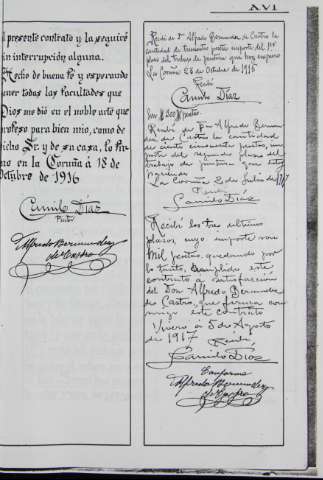 XVI
el presente contrato y la seguiré
sin interrupción alguna.
Hecho de buena fé y esperando
tener todas las facultades que
Dios me dió en el noble arte que
profeso para bien mio, como de
dicho Sr. y de su casa, lo fir
mo en la Coruña á 18 de
Octubre de 1916
Camilo Díaz
Pintor
Alfredo Bermúdez
de Castro
Recibí de Dn Alfredo Bermúdez de Castro la
cantidad de trescientas pesetas importe del 1er
plazo del trabajo de pintura que hoy empiezo
La Coruña 23 de Octubre de 1916
Recibí
Camilo Díaz
Son
Recibí de Dn Alfredo Bermu
dez de Castro la cantidad
de ciento cincuenta pesetas, im
porte del segundo plazo del
trabajo de pintura de
La Coruña 2 de Julio de 1917
Recibí
Camilo Díaz
Recibí los tres últimos
plazos, cuyo importe son
mil pesetas, quedando por
lo tanto, cumplido este
contrato a satisfacción
del Don Alfredo Bermudez
de Castro, que firma con
migo este contrato
Vivero a 5 de Agosto
de 1917
Recibí
Camilo Díaz
Conforme
Alfredo Bermúdez
de Castro